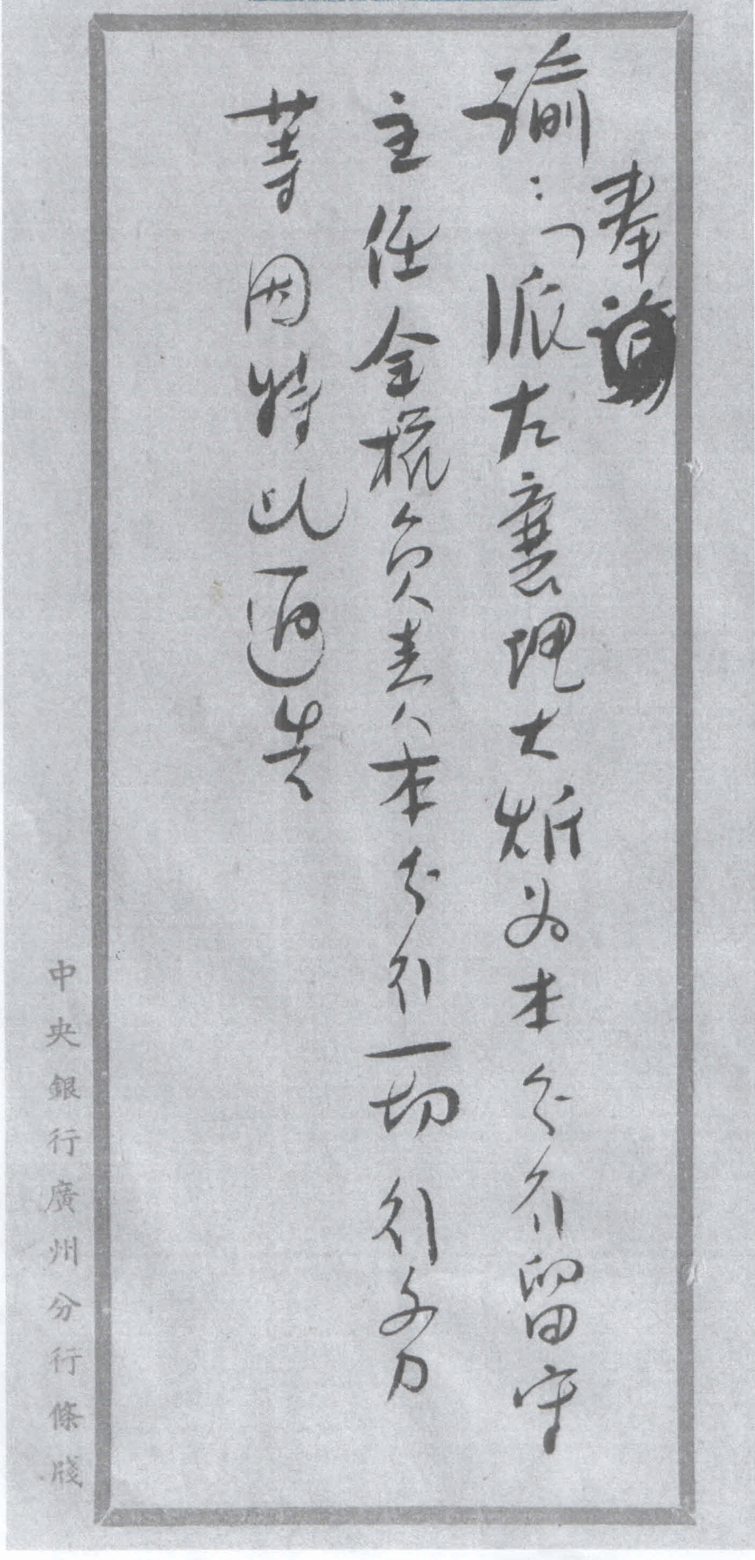 奉
諭：「派左襄理大炘為本分行留守
主任全權負責本分行一切行务
等因特此通告
中央銀行廣州分行條牋